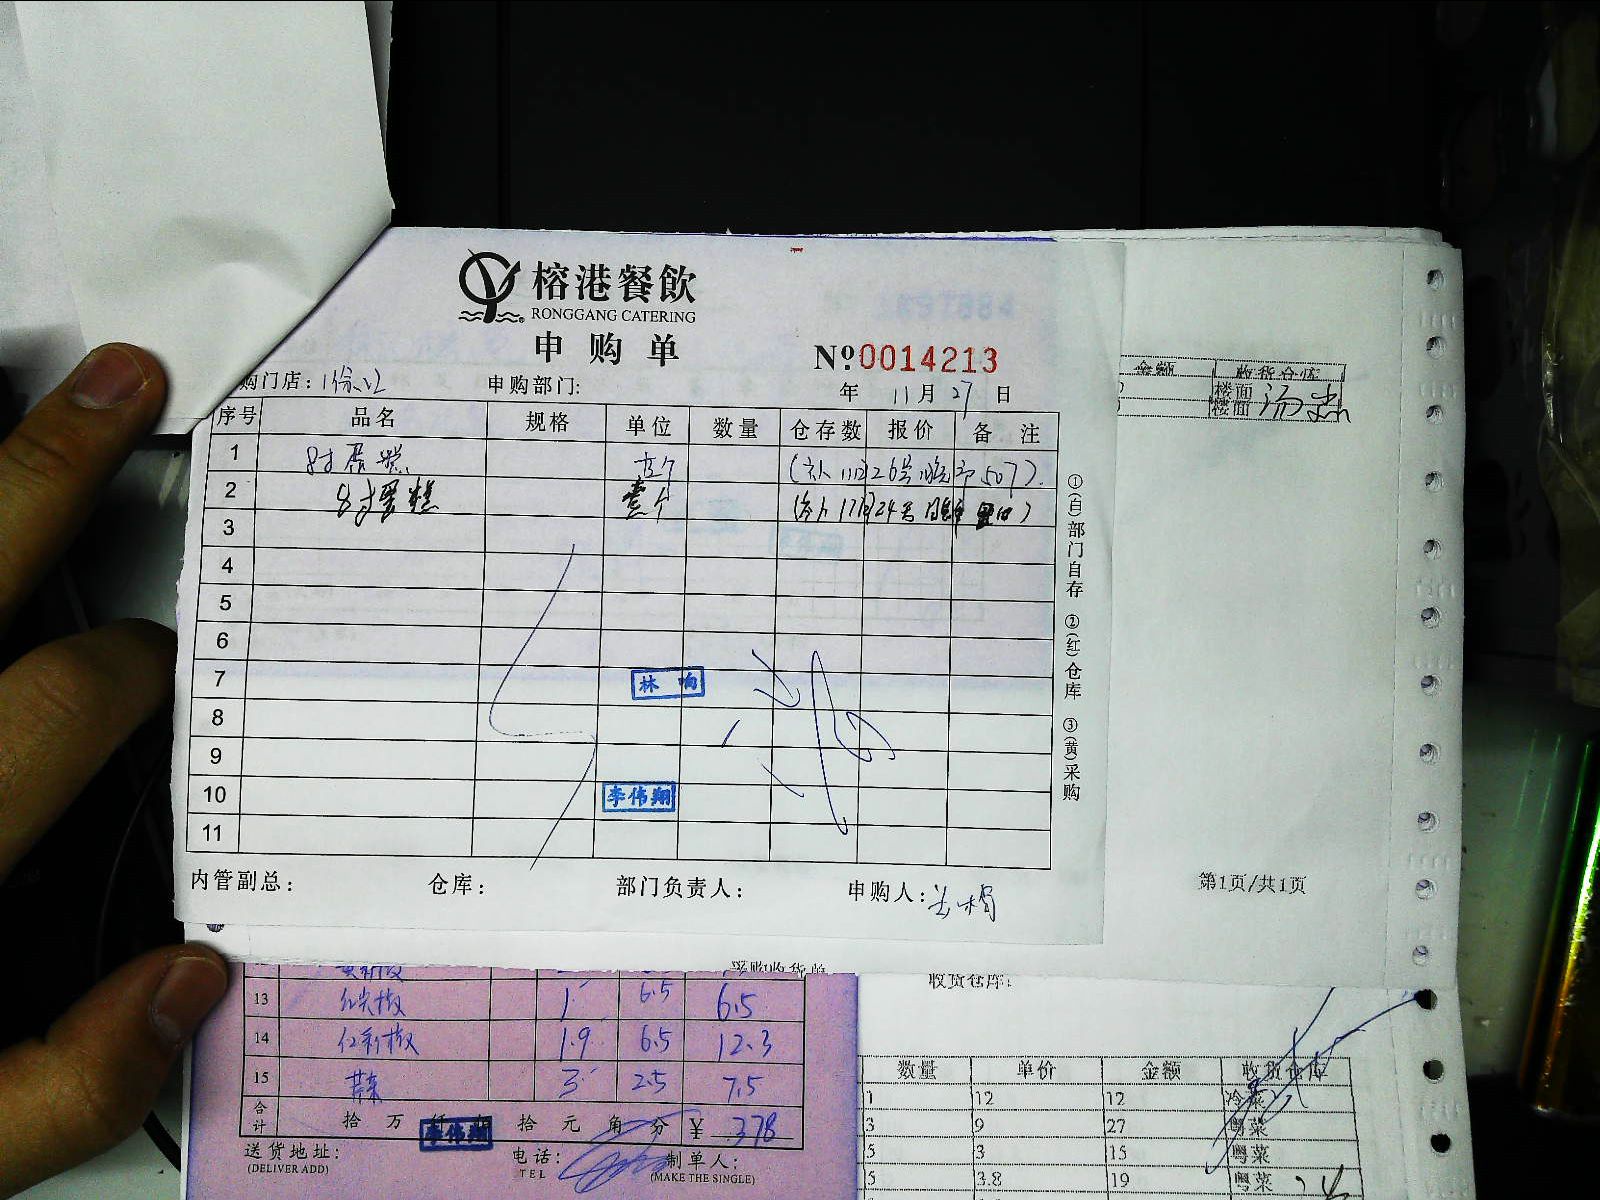 榕港餐飲
RONGGANG CATERING
申购单
№0014213
购门店: 申购部门: 年 11月 27 日
序号 品名 规格 单位 数量 仓存数 报价 备注
1 8寸蛋糕 26号 507)
2 8寸蛋糕 壹个 24号
3
4
5
6
7
8
9
10
11
林 响
李伟翔
内管副总: 仓库: 部门负责人: 申购人:
①(白)部门自存 ②(红)仓库 ③(黄)采购
金额 收货仓库
楼面
楼面
第1页/共1页
采购收货单
收货仓库:
13 红尖椒 1 6.5 6.5
14 1.9 6.5 12.3
15 3 2.5 7.5
合计 拾 万 仟 佰 拾 元 角 分 ¥ 378
李伟翔
送货地址: 电话: 制单人:
(DELIVER ADD) TEL (MAKE THE SINGLE)
数量 单价 金额 收货仓库
1 12 12 冷菜
3 9 27 粤菜
5 3 15 粤菜
5 3.8 19 粤菜